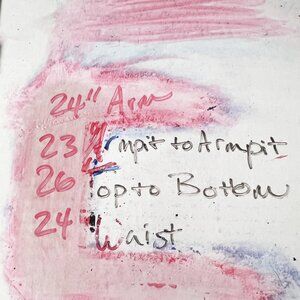 24" Arm
23 Armpit to Armpit
26 Top to Bottom
24 Waist